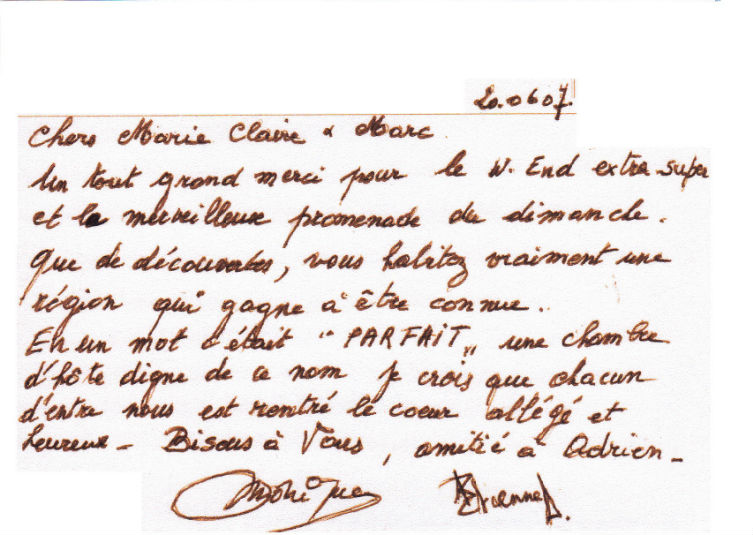 20.0607.
Chers Marie Claire & Marc
Un tout grand merci pour le W. End extra super
et la merveilleuse promenade du dimanche.
Que de découvertes, vous habitez vraiment une
région qui gagne à être connue..
En un mot c'était "PARFAIT„ une chambre
d'hôte digne de ce nom je crois que chacun
d'entre nous est rentré le coeur allégé et
heureux - Bisous à Vous, amitié à Adrien -
Monique